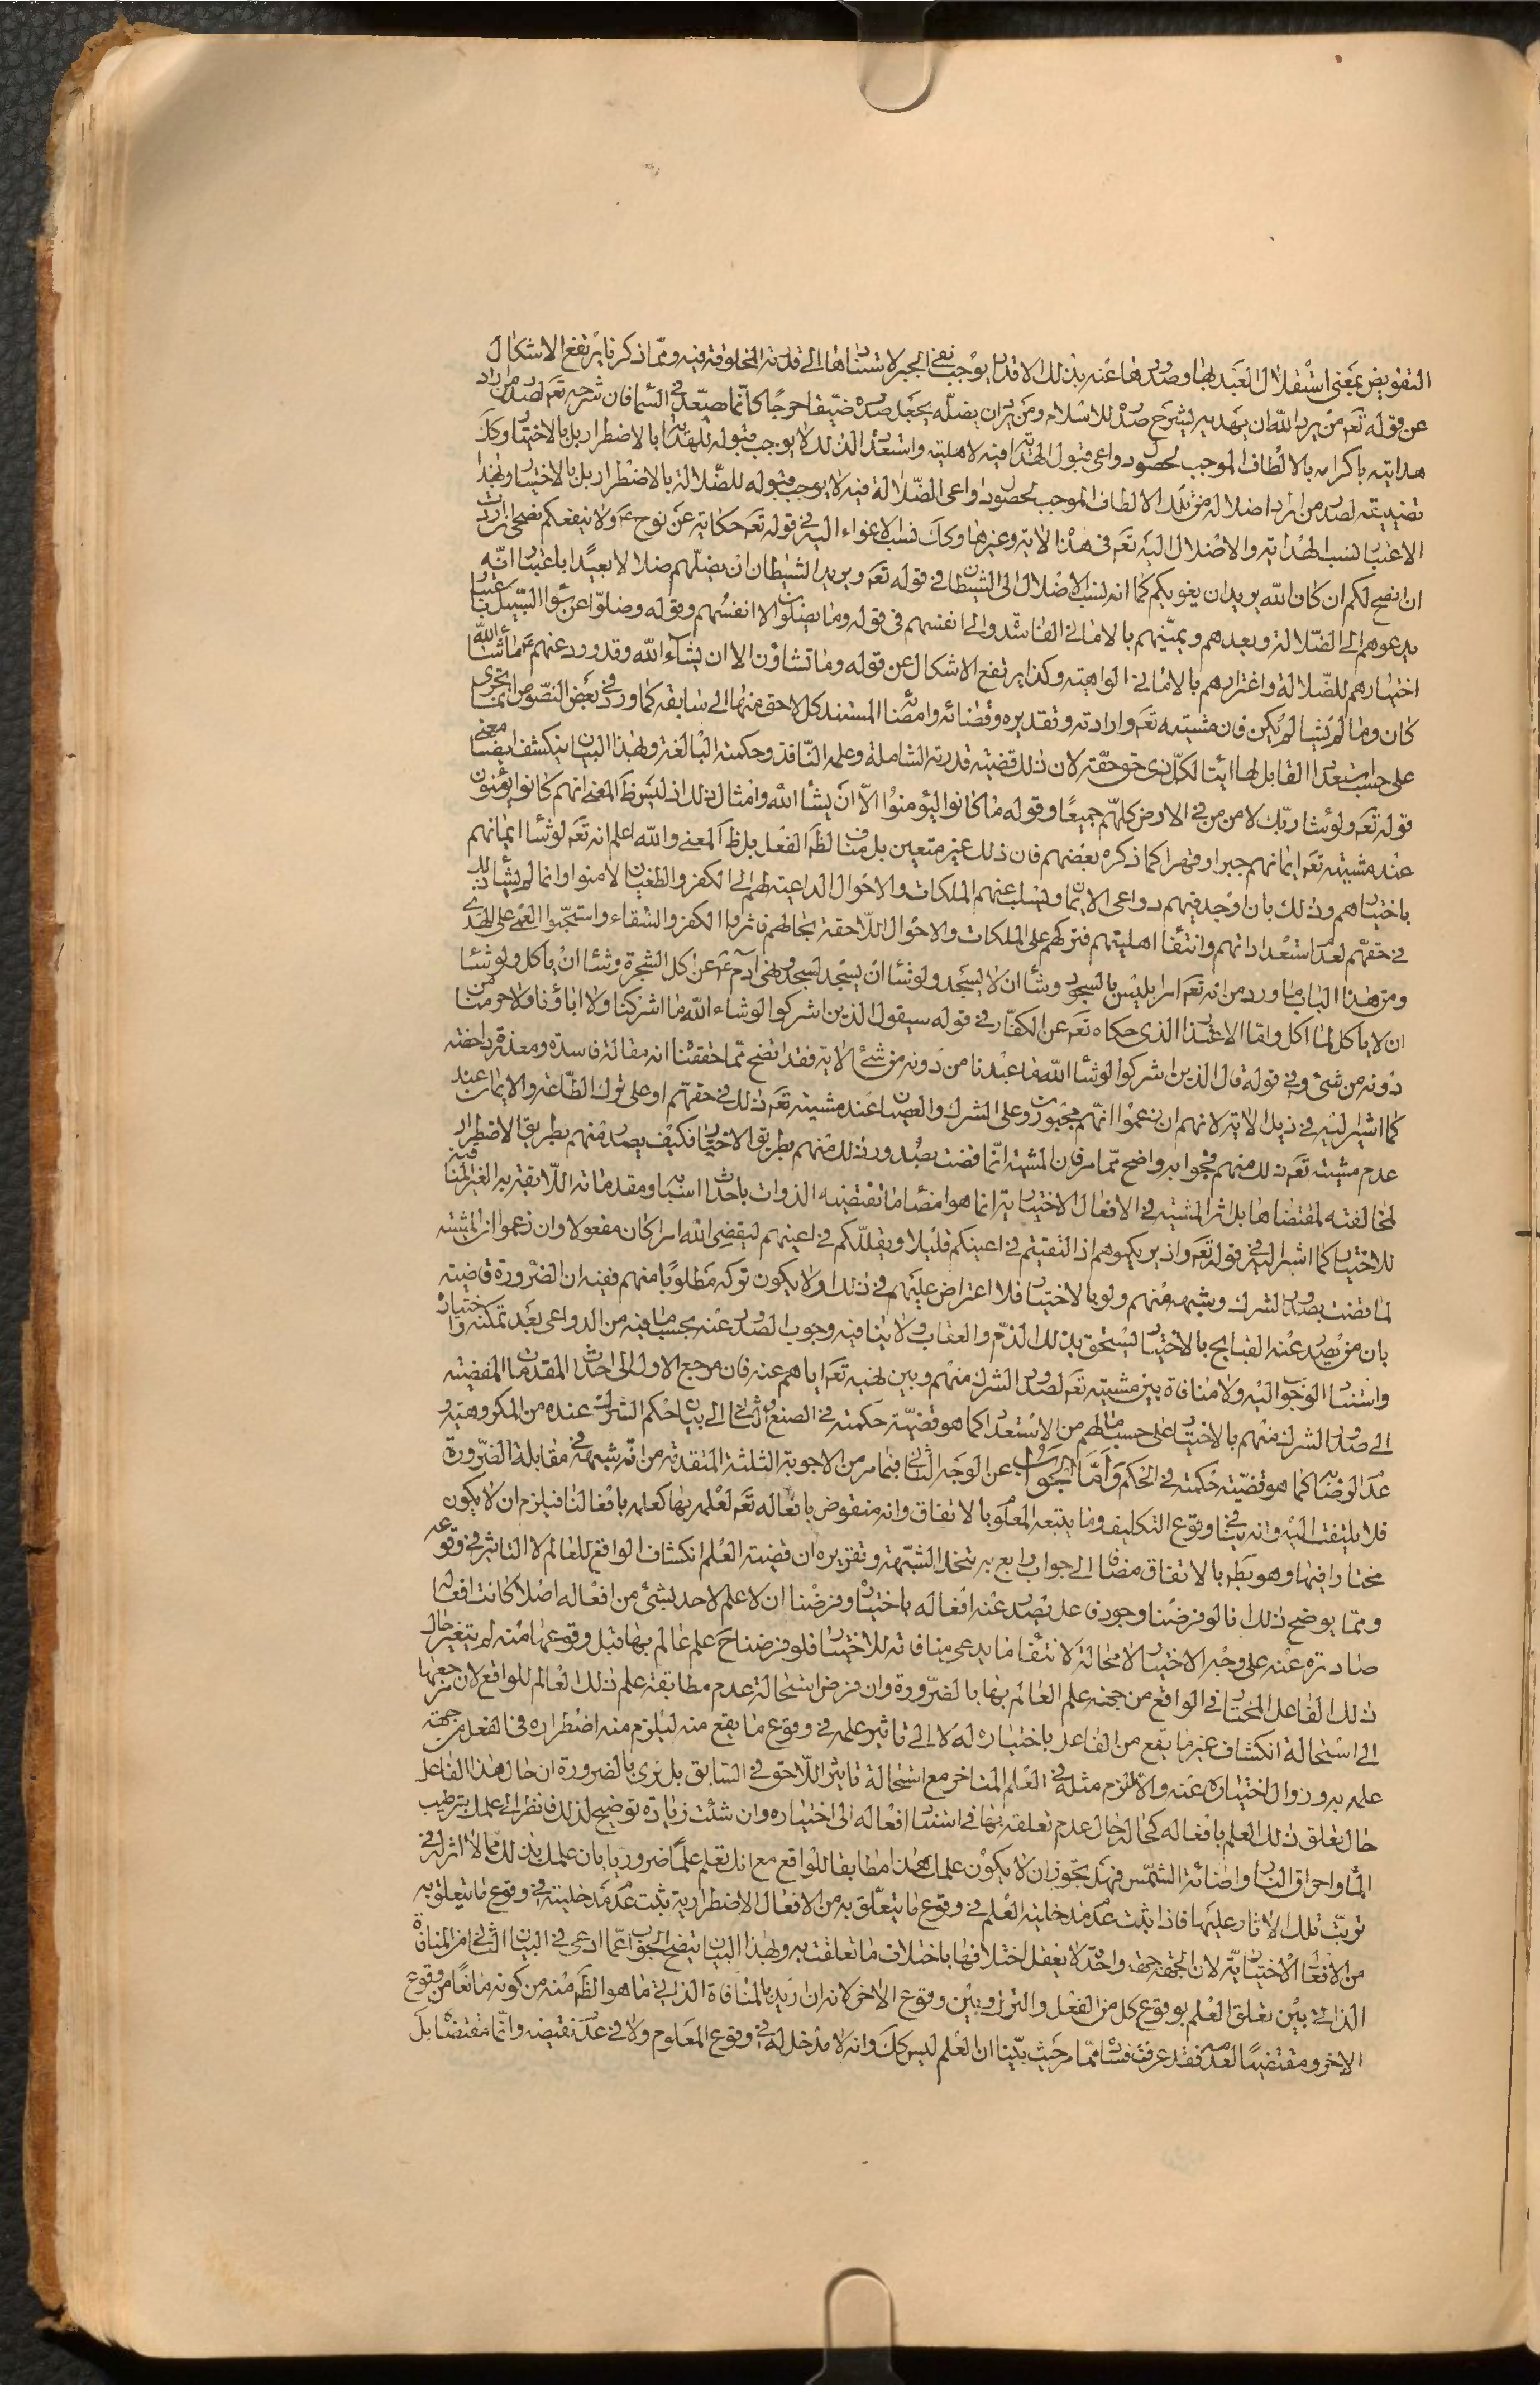 التفويض بمعنى استقلال العبد بها وصدورها عنه بذلك الاقدار يوجب نفى الجبر لاستنادها الى قدرته المخلوقة فيه وممّا ذكرنا يرتفع الاشكال
عن قوله تعَ من يرد اللّه ان يهديه يشرح صدره للاسلام ومن يرد ان يضلّه يجعل صدره ضيّقا حرجًا كانّما يصّعّد فى السّماء فان شرحه تعَ لصدر من اراد
هدايته باكرامه بالالطاف الموجب لحصول دواعى قبول الهداية فيه لاهليته واستعداده لذلك لا يوجب قبوله للهداية بالاضطرار بل بالاختيار وكك
تضييقه لصدر من اراد اضلاله من تلك الالطاف الموجب لحصول دواعى الضّلالة فيه لا يوجب قبوله للضّلالة بالاضطرار بل بالاختيار وبهذا
الاعتبار نسب الهداية والاضلال اليه تعَ فى هذه الاية وغيرها وكك نسب الاغواء اليه فى قوله تعَ حكاية عن نوح ع ولا ينفعكم نصحى ان اردت
ان انصح لكم ان كان اللّه يريد ان يغويكم كما انه نسب الاضلال الى الشيطان فى قوله تعَ ويريد الشيطان ان يضلّهم ضلالا بعيدًا باعتبار انّه
يدعوهم الى الضّلالة ويعدهم ويمنّيهم بالامانى الفاسدة والى انفسهم فى قوله وما يضلّون الا انفسُهم وقوله وضلوّا عن سَواء السّبيل باعتبار
اختيارهم للضّلالة واغترارهم بالامانى الواهية وكذا يرتفع الاشكال عن قوله وما تشاؤن الا ان يشاء اللّه وقد ورد عنهم ع ما شاء اللّه
كان وما لم يشأ لم يكن فان مشيته تعَ وارادته وتقديره وقضائه وامضائه المستند كل لاحق منها الى سابقه كما ورد فى بعض النصّوص انما تجرى
على حسب استعداد القابل لها ايتاء لكلّ ذى حق حقّه لان ذلك قضيّة قدرته الشاملة وعلمه النّافذ وحكمته البالغة وبهذا البيان ينكشف ايضا معنى
قوله تعَ ولو شاء ربّك لامن من فى الارض كلهّم جميعًا وقوله ما كانوا ليؤمنوُا الاّ انْ يشاء اللّه وامثال ذلك اذ ليس ظَ المعنى انهم كانوا يؤمنون
عند مشيته تعَ ايمانهم جبرا وقهرا كما ذكره بعضهم فان ذلك غير متعين بل مناف لظَ الفعل بل ظَ المعنى واللّه اعلم انه تعَ لو شاء ايمانهم
باختيارهم وذلك بان اوجد فيهم دواعى الايمان وليسلب عنهم الملكات والاحوال الداعية لهم الى الكفر والطغيان لامنوا وانما لم يشأ ذلك
فى حقهّم لعدم استعداداتهم وانتفاء اهليتهم فتركهم على الملكات والاحوال اللّاحقة بحالهم فاثروا الكفر والشّقاء واستحبّوا العمى على الهدى
ومن هذا الباب ما ورد من انه تعَ امر ابليس بالسجود وشاء ان لا يسجد ولو شاء ان يسجد لسجد ونهى آدم ع عن اكل الشجرة وشاء ان ياكل ولو شاء
ان لا ياكل لما اكل وامّا الاعتذار الذى حكاه تعَ عن الكفّار فى قوله سيقول الذين اشركوا لو شاء اللّه ما اشركنا ولا اباؤنا ولا حرمنا من
دونه من شئ وفى قوله قال الذين اشركوا لو شاء اللّه ما عبدنا من دونه من شئ الاية فقد اتضح ممّا حققنا انه مقالة فاسدة ومعذرة داحضة
كما اشير اليه فى ذيل الاية لانهم ان زعموا انّهم مجبورون على الشرك والعصيان عند مشيته تعَ ذلك فى حقهّم او على ترك الطّاعة والايمان عند
عدم مشيته تعَ ذلك منهم فجوابه واضح ممّا مر فان المشية انّما قضت بصُدور ذلك منهم بطريق الاختيار فكيف يصدر منهم بطريق الاضطرار
لمخالفته لمقتضاها بل اثر المشية فى الافعال الاختيارية انما هو امضاء ما تقتضيه الذوات باحداث اسبابه ومقدماته اللّايقة به الغير المنافية
للاختيار كما اشير اليه فى قوله تعَ واذ يريكموهم اذ التقيتم فى اعينكم قليلا ويقلّلكم فى اعينهم ليقضى اللّه امرا كان مفعولا وان زعموا ان المشية
لما قضت بصدور الشرك وشبهه منهم ولو بالاختيار فلا اعتراض عليهم فى ذلك ولا يكون تركه مطلوبًا منهم ففيه ان الضّرورة قاضية
بان من يصدر عنه القبايح بالاختيار يستحق بذلك الذمّ والعقاب ولا ينافيه وجوب الصدور عنه بحسب ما فيه من الدواعى بعد تمكنه واختياره
واستناد الوجوب اليه ولا منافاة بين مشيته تعَ لصدور الشرك منهم وبين نهيه تعَ اياهم عنه فان مرجع الاول الى احداث المقدمات المفضية
الى صدور الشرك منهم بالاختيار على حسب ما لهم من الاستعداد كما هو قضيّة حكمته فى الصنع والثانى الى بيان حكم الشرك عنده من المكروهية و
عدم الرضا به كما هو قضيّة حكمته فى الحكم وَامَّا الجَوَابُ عن الوجه الثانى فبما مر من الاجوبة الثلثة المتقدمة من انّه شبهة فى مقابلة الضّرورة
فلا يلتفت اليه وانه ينافى وقوع التكليف وما يتبعه المعلوم بالاتفاق وانه منقوض بافعاله تعَ لعلمه بها كعلمه بافعالنا فيلزم ان لا يكون
مختارا فيها وهو بَطَ بالاتفاق مضافا الى جواب رابع به تنحل الشبّهة وتقريره ان قضية العلم انكشاف الواقع للعالم لا التاثير فى وقوعه
وممّا يوضح ذلك انا لو فرضنا وجود فاعل يصدر عنه افعاله باختياره وفرضْنا ان لا علم لاحد بشئ من افعاله اصلا كانت افعاله
صادرة عنه على وجه الاختيار لا محالة لانتفاء ما يدعى منافاته للاختيار فلو فرضنا حَ علم عالم بها قبل وقوعها منه لم يتغير حال
ذلك الفاعل المختار فى الواقع من جهة علم العالم بها بالضّرورة وان فرض استحالة عدم مطابقة علم ذلك العالم للواقع لان مرجعها
الى استحالة انكشاف غير ما يقع من الفاعل باختياره له لا الى تاثير علمه فى وقوع ما يقع منه ليلزم منه اضطراره فى الفعل من جهة
علمه به وزوال اختياره عنه والا لزم مثله فى العلم المتاخر مع استحالة تاثير اللّاحق فى السّابق بل نرى بالضرورة ان حال هذا الفاعل
حال تعلق ذلك العلم بافعاله كحاله حال عدم تعلقه بها فى استناد افعاله الى اختياره وان شئت زيادة توضيح لذلك فانظر الى علمك بترطيب
الماء واحراق النار واضائة الشّمس فهل يجوّز ان لا يكون علمك هذا مطابقا للواقع مع انك تعلم علمًا ضروريا بان علمك بذلك ممّا لا اثر له فى
ترتّب تلك الاثار عليها فاذا ثبت عدم مدخلية العلم فى وقوع ما يتعلّق به من الافعال الاضطرارية ثبت عدم مدخليته فى وقوع ما يتعلق به
من الافعال الاختياريّة لان الجهة جهة واحدة لا يعقل اختلافها باختلاف ما تعلقت به وبهذا البيان يتضح الجواب عمّا ادعى فى البيان الثانى من المنافاة
الذاتى بين تعلق العلم بوقوع كل من الفعل والترك وبين وقوع الاخر لانه ان اريد بالمنافاة الذاتى ما هو الظَ منه من كونه مانعًا من وقوع
الاخر ومقتضيًا لعدمه فقد عرفت فساده ممّا مر حيث بيّنا ان العلم ليس كك وانه لا مدخل له فى وقوع المعلوم ولا فى عدم نقيضه وانّما مقتضاه بل